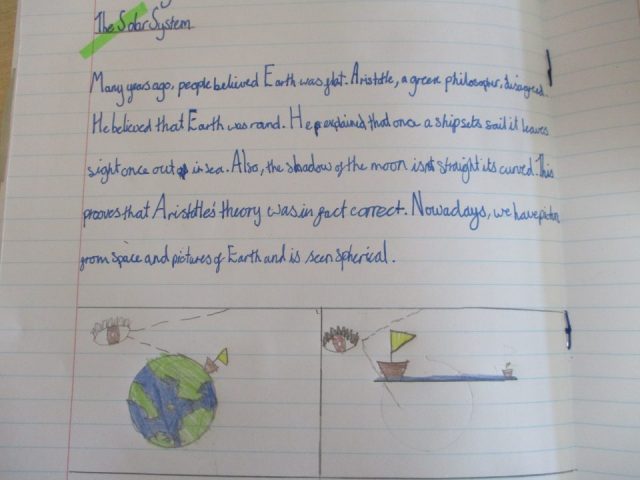 The Solar System
Many years ago, people believed Earth was flat. Aristotle, a greek philosopher, disagreed.
He believed that Earth was round. He explained that once a ship sets sail it leaves
sight once out in sea. Also, the shadow of the moon isnt straight its curved. This
prooves that Aristotle's theory was in fact correct. Nowadays, we have picture
from space and pictures of Earth and is seen spherical.